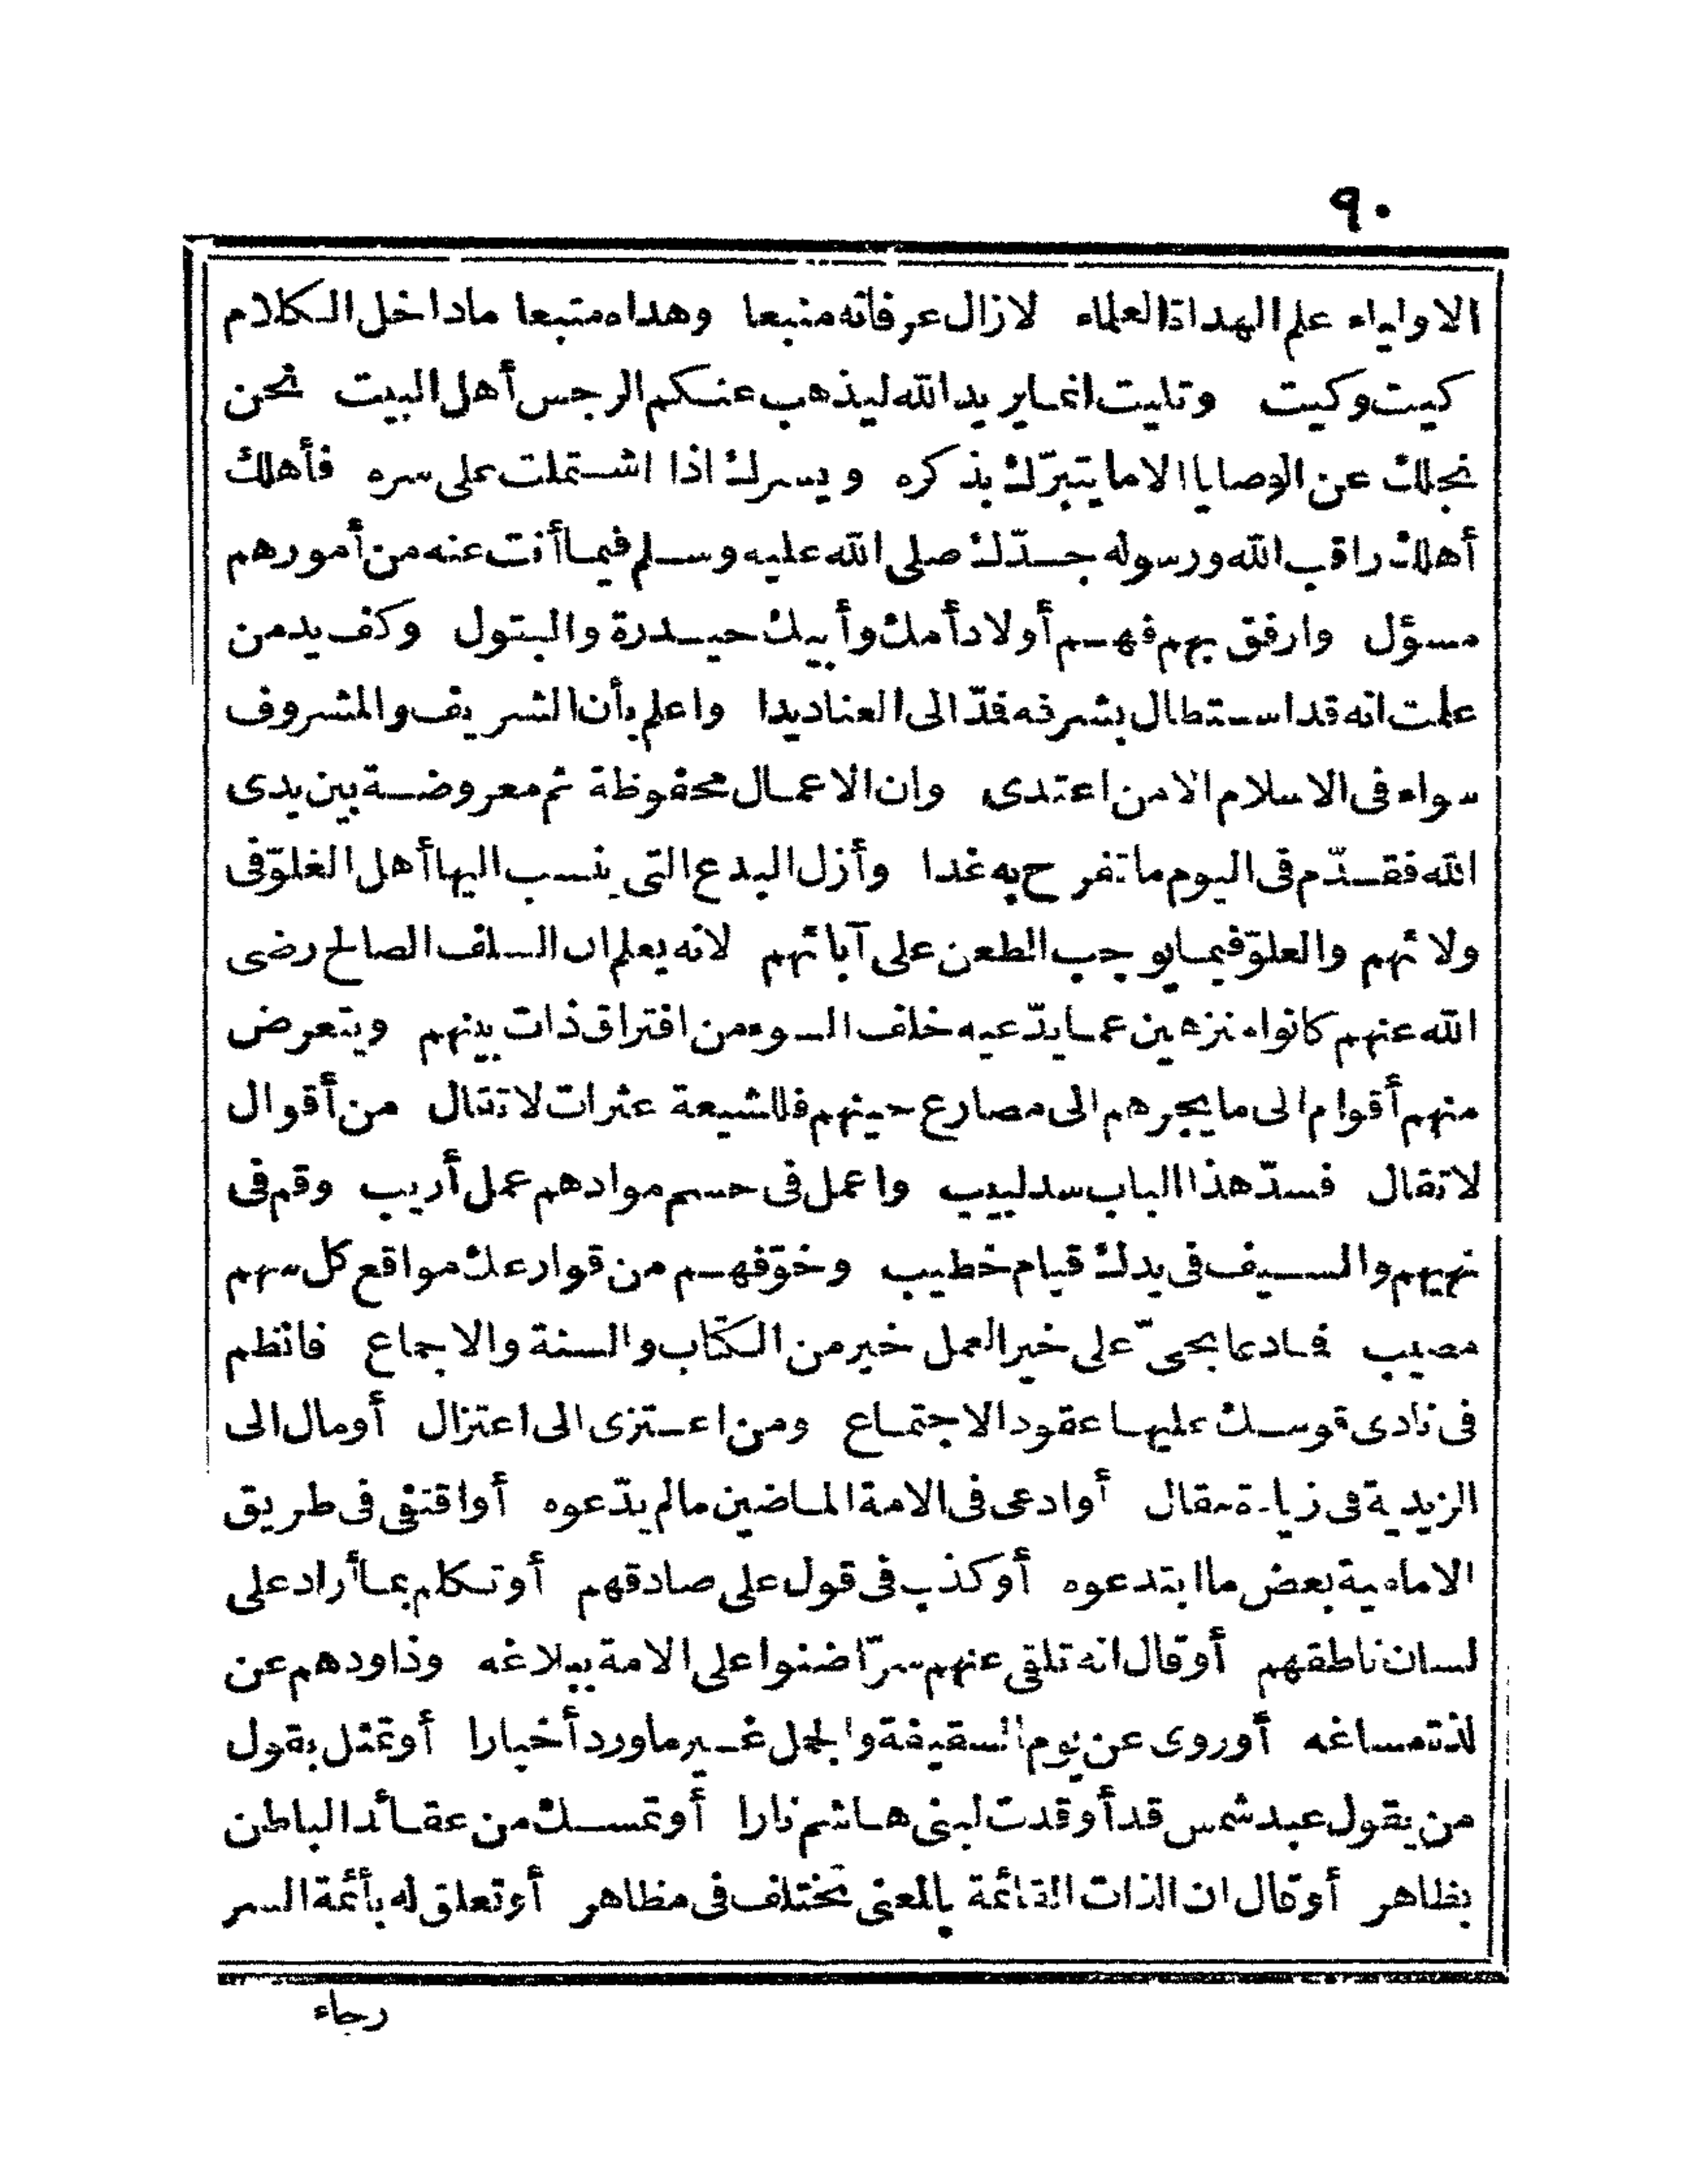 ٩٠
الاولياء علم الهداة العلماء لازال عرفانه منبعا وهداه متبعا ماداخل الكلام
كيت وكيت وتليت انما يريد الله ليذهب عنكم الرجس أهل البيت نحن
نجلك عن الوصايا الا ما يتبرّك بذكره ويسرك اذا اشتملت على سره فأهلك
أهلك راقب الله ورسوله جدّك صلى الله عليه وسلم فيما أنت عنه من أمورهم
مسؤل وارفق بهم فهم أولاد أمك وأبيك حيدرة والبتول وكف يد من
علمت انه قد استطال بشرفه فمدّ الى العناد يدا واعلم بأن الشريف والمشروف
سواء فى الاسلام الا من اعتدى وان الاعمال محفوظة ثم معروضة بين يدى
الله فقدّم فى اليوم ما تفرح به غدا وأزل البدع التى ينسب اليها أهل الغلوّ فى
ولائهم والعلوّ فيما يوجب الطعن على آبائهم لانه يعلم ان السلف الصالح رضى
الله عنهم كانوا منزهين عما يدّعيه خلف السوء من افتراق ذات بينهم ويتعرض
منهم أقوام الى ما يجرهم الى مصارع حينهم فللشيعة عثرات لا تقال من أقوال
لا تقال فسدّ هذا الباب سد لبيب واعمل فى حسم موادهم عمل أريب وقم فى
نهيهم والسيف فى يدك قيام خطيب وخوّفهم من قوارعك مواقع كل سهم
مصيب فما دعا بحىّ على خير العمل خير من الكتاب والسنة والاجماع فانظم
فى نادى قومك عليها عقود الاجتماع ومن اعتزى الى اعتزال أو مال الى
الزيدية فى زيادة مقال أو ادعى فى الامة الماضين ما لم يدّعوه أو اقتفى فى طريق
الامامية بعض ما ابتدعوه أو كذب فى قول على صادقهم أو تكلم بما أراد على
لسان ناطقهم أو قال انه تلقى عنهم سرّا ضنوا على الامة ببلاغه وذاودهم عن
لذة مساغه أو روى عن يوم السقيفة والجمل غير ما ورد أخبارا أو تمثل بقول
من يقول عبد شمس قد أوقدت لبنى هاشم نارا أو تمسك من عقائد الباطن
بظاهر أو قال ان الذات القائمة بالمعنى تختلف فى مظاهر أو تعلق له بأئمة الستر
رجاء